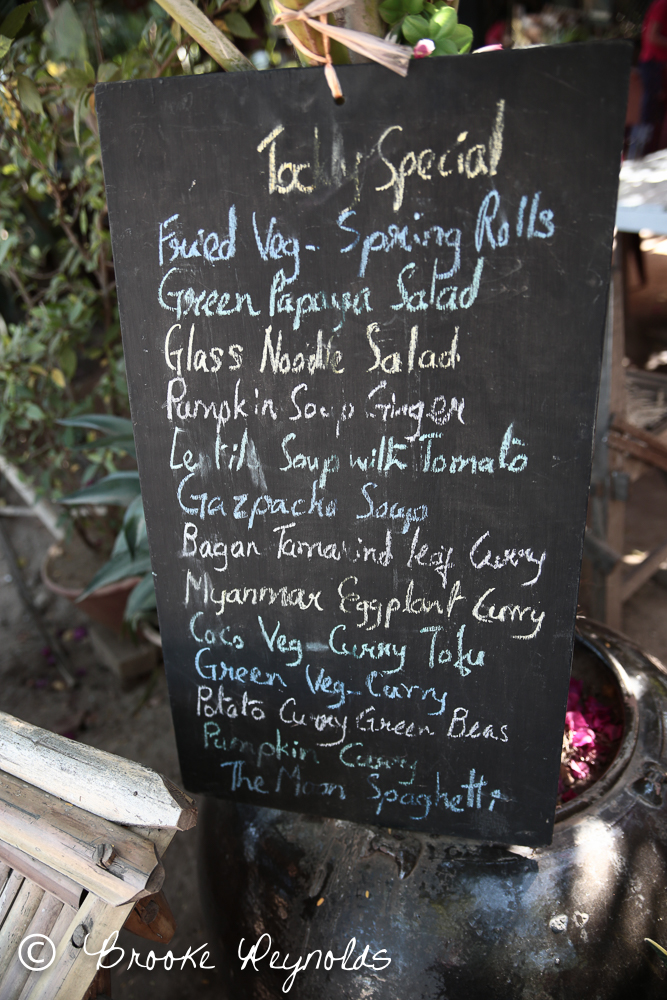 Tody Special
Fried Veg- Spring Rolls
Green Papaya Salad
Glass Noodle Salad
Pumpkin Soup Ginger
Lentil Soup with Tomato
Gazpacho Soup
Bagan Tamarind leaf Curry
Myanmar Eggplant Curry
Coco Veg-Curry Tofu
Green Veg-Curry
Potato Curry Green Beas
Pumpkin Curry
The Moon Spaghetti
© Brooke Reynolds